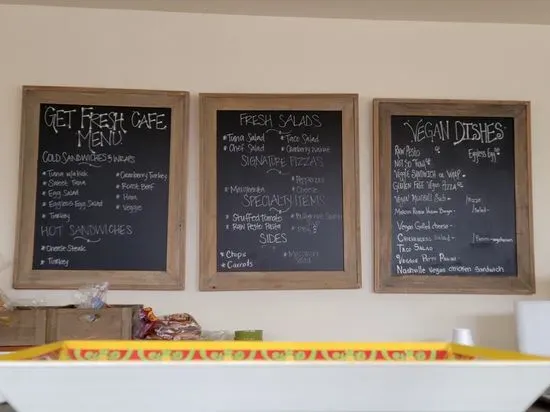 GET FRESH CAFE
MENU
COLD SANDWICHES & WRAPS
* Tuna w/
* Sweet Tuna
* Egg Salad
* Eggless Egg Salad
* Turkey
* Cranberry Turkey
* Roast Beef
* Ham
* Veggie
HOT SANDWICHES
* Cheese Steak
* Turkey
FRESH SALADS
* Tuna Salad
* Chef Salad
* Taco Salad
* Cranberry
SIGNATURE PIZZAS
* Margherita
* Pepperoni
* Cheese
SPECIALTY ITEMS
* Stuffed Tomato
* Raw Pesto Pasta
SIDES
* Chips
* Carrots
* Macaroni
Salad
VEGAN DISHES
Raw Pesto
Not So Tuna
Veggie Sandwich or Wrap
Gluten Free Vegan Pizza
Vegan Meatball Sub
Vegan Burger
Vegan Grilled Cheese
Chickenless Salad
Taco Salad
Veggie Patty
Nashville Vegan Chicken Sandwich
Eggless Egg